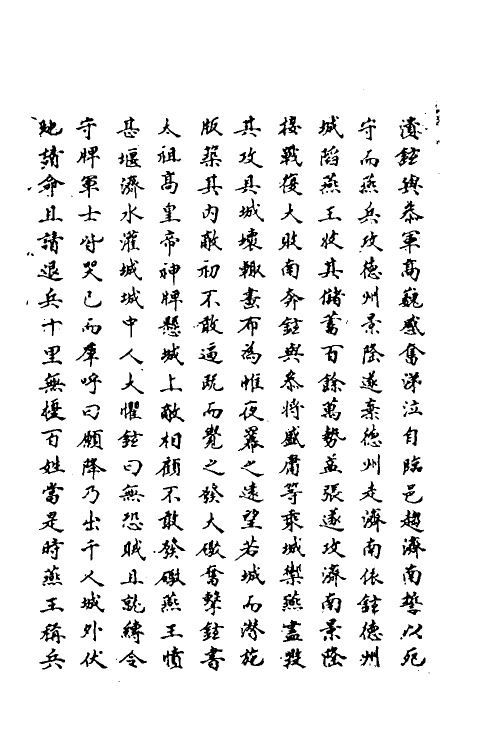 潰鉉與叅軍高巍感奮涕泣自臨邑趨濟南誓以死
守而燕兵攻德州景隆遂棄德州走濟南依鉉德州
城陷燕王收其儲蓄百餘萬勢益張遂攻濟南景隆
接戰復大敗南奔鉉與叅將盛庸等乘城禦燕盡毀
其攻具城壞輙畫布為帷夜冪之遠望若城而潛施
版築其内敵初不敢逼既而覺之發大礮奮擊鉉書
太祖高皇帝神牌懸城上敵相顧不敢發礮燕王憤
甚堰濟水灌城城中人大懼鉉曰無恐賊且就縛令
守陴軍士皆哭已而庫呼曰願降乃出千人城外伏
地請命且請退兵十里無擾百姓當是時燕王稱兵